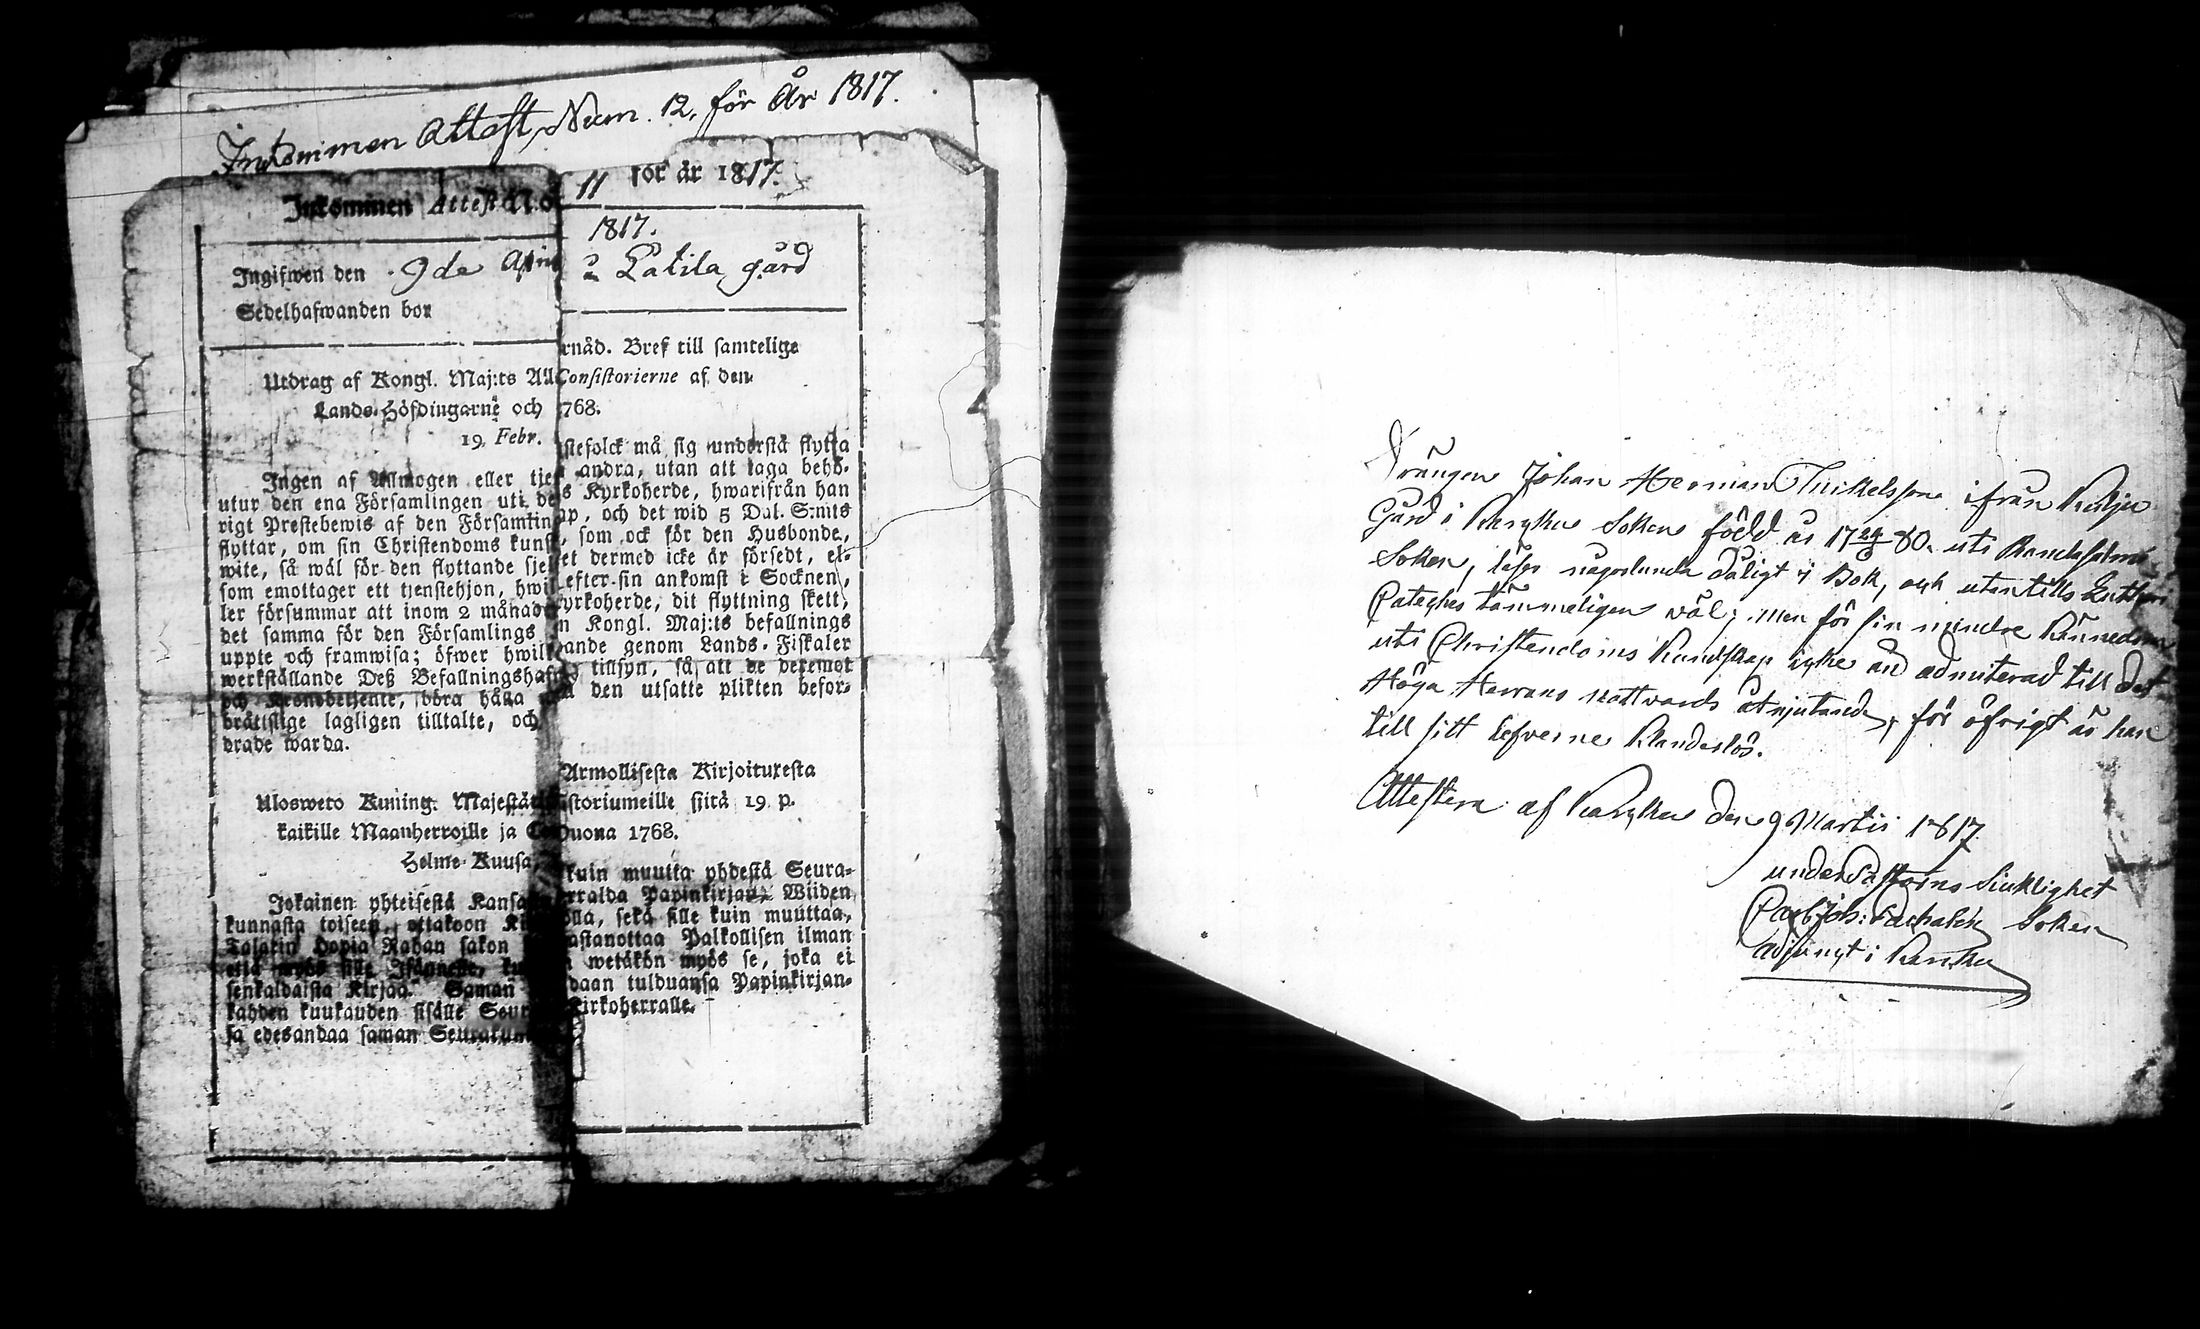 Inkommen Attest, Num. 12, för År 1817.
Inkommen Attest N:o 11 för år 1817.
Ingifwen den 9de April 1817.
Sedelhafwanden bor å Latila gård
Utdrag af Kongl. Maj:ts All rnåd. Bref till samtelige
Lands-Höfdingarne och Consistorierne af den
19. Febr. 1768.
Ingen af Allmogen eller tje stefolck må sig understå flytta
utur den ena Församlingen uti de andra, utan att taga behö-
rigt Prestebewis af den Församlin s Kyrkoherde, hwarifrån han
flyttar, om sin Christendoms kuns ap, och det wid 5 Dal. S:mts
wite, så wäl för den flyttande sjel , som ock för den Husbonde,
som emottager ett tjenstehjon, hwil et dermed icke är försedt, el-
ler försummar att inom 2 månade efter sin ankomst i Socknen,
det samma för den Församlings yrkoherde, dit flyttning skett,
uppte och framwisa; öfwer hwilk n Kongl. Maj:ts befallnings
werkställande Deß Befallningshaf ande genom Lands-Fiskaler
och Kronobetjente, böra hålla tillsyn, så att de deremot
brätslige lagligen tilltalte, och den utsatte plikten befor-
drade warda.
Ulosweto Kuning. Majestät Armollisesta Kirjoituxesta
kaikille Maanherroille ja Co istoriumeille siitä 19 p.
Helme-Kuusa Wuona 1768.
Jokainen yhteisestä Kansa kuin muutta yhdestä Seura-
kunnasta toiseen, ottakoon Ki rralda Papinkirjan, Wiiden
Talarin Hopia Rahan sakon olla, sekä sille kuin muuttaa,
että myös sille Isännelle, ku astanottaa Palkollisen ilman
senkaldaista Kirjaa. Saman wetäkön myös se, joka ei
kahden kuukauden sisälle Seur daan tulduansa Papinkirjan-
sa edesandaa saman Seurakun Kirkoherralle.
Drängen Johan Herman Thikelsson ifrån
Gård i Soken född år 17 24 80. uti Randasalmi
Soken, läser någorlunda dåligt i Bok, och utantills Lutheri
Cateches tämmeligen wäl; men för sin mindre Kännedom
uti Christendoms Kundskap icke än admiterad till det
Höga Herrans nattvards åtnjutande, för öfrigt är han
till sitt lefverne klanderlös.
Attestera af den 9 Martii 1817
under Pastorns Siuklighet
Soken
adjunct i